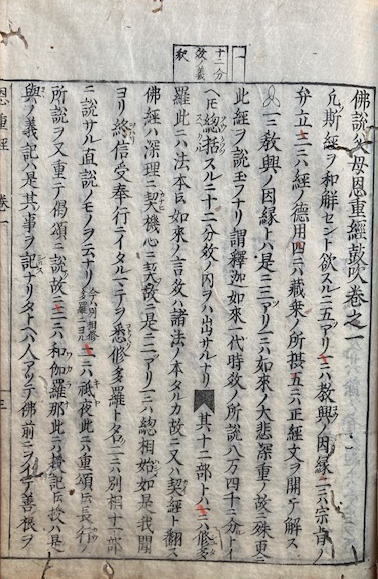 一
十二分
教ノ義
釈
佛説父母恩重經鼓吹卷之一
凡斯經ヲ和解セント欲スルニ五アリ一ニハ教興ノ因縁二ハ宗旨ノ
弁立三ニハ經ノ德用四ニハ藏乘ノ所摂五ニハ正經文ヲ開テ解ス
一ニ教興ノ因縁トハ是ニ二アリ一ニハ如來ノ大悲深重ノ故ニ殊更ニ
此經ヲ説玉フナリ謂釋迦如來一代時教ノ所説八万四千ニ分トイ
ヘ𪜈總括スルニ十二分教ノ内ヲハ出サルナリ其十二部トハ一ニハ修多
羅此ニハ法本ト云如來ノ言教ハ諸法ノ本タルカ故ニ又ハ契經ト翻ス
佛經ハ深理ニ契機心ニ契故ニ是ニ二アリ一ニハ總相始如是我聞
ヨリ終信受奉行ニイタルマテヲ悉修多羅ト名二ニハ別相十二部
ニ説サル直説ノモノヲ云ナリ今ハ別相修多羅ニヨル二ニハ祇夜此ニハ重頌ト云長行
所説ヲ又重テ偈頌ニ説故ニ三ニハ和伽羅那此ニハ授記ト云授ハ是
與ノ義記ハ是其事ヲ記ナリタトヘハ人アツテ佛前ニヲイテ善根ヲ
恩重經 卷一 三